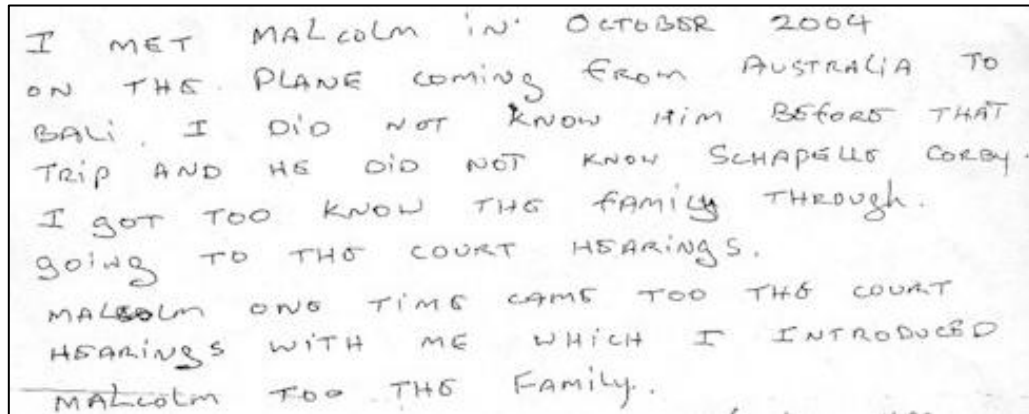 I MET MALCOLM IN OCTOBER 2004
ON THE PLANE COMING FROM AUSTRALIA TO
BALI. I DID NOT KNOW HIM BEFORE THAT
TRIP AND HE DID NOT KNOW SCHAPELLE CORBY.
I GOT TOO KNOW THE FAMILY THROUGH.
GOING TO THE COURT HEARINGS.
MALCOLM ONE TIME CAME TOO THE COURT
HEARINGS WITH ME WHICH I INTRODUCED
MALCOLM TOO THE FAMILY.